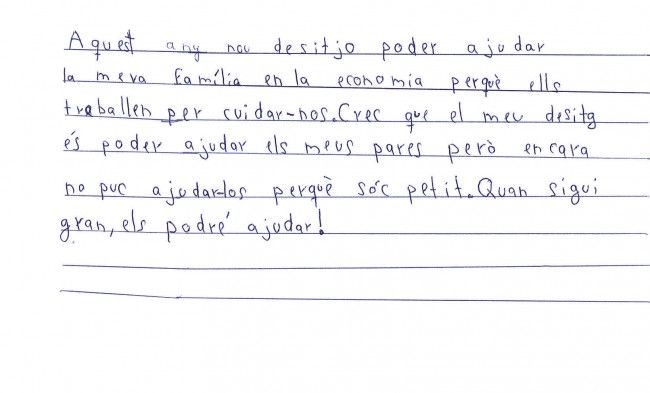 Aquest any nou desitjo poder ajudar
la meva família en la economia perquè ells
treballen per cuidar-nos. Crec que el meu desitg
és poder ajudar els meus pares però encara
no puc ajudar-los perquè sóc petit. Quan sigui
gran, els podré ajudar!